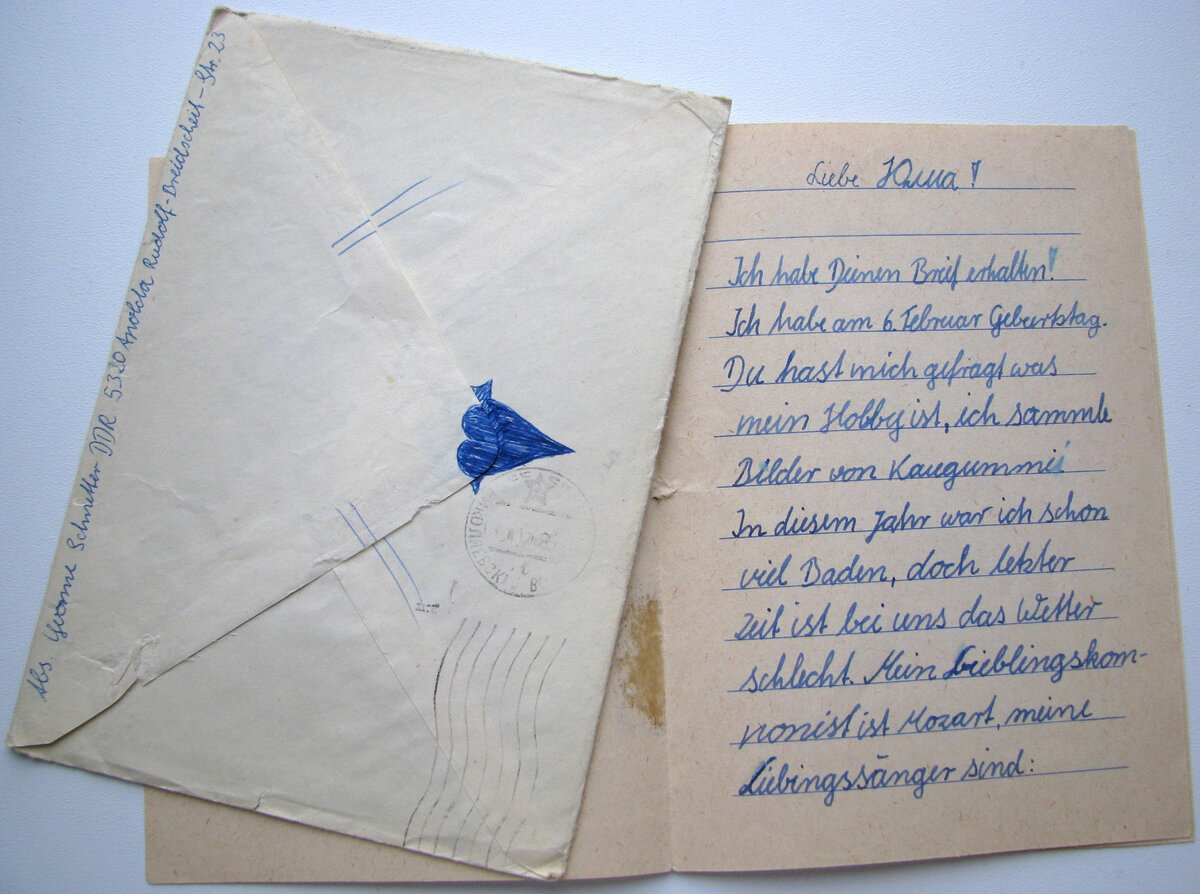 Abs Yvonne Schnetter DDR 5320 Apolda Rudolf-Breidscheit-Str. 23
Liebe Юлиа!
Ich habe Deinen Breif erhalten!
Ich habe am 6. Februar Geburtstag.
Du hast mich gefragt was
mein Hobby ist, ich sammle
Bilder von Kaugummi
In diesem Jahr war ich schon
viel Baden, doch letzter
Zeit ist bei uns das Wetter
schlecht. Mein Lieblingskom-
ponist ist Mozart, meine
Liebingssänger sind: